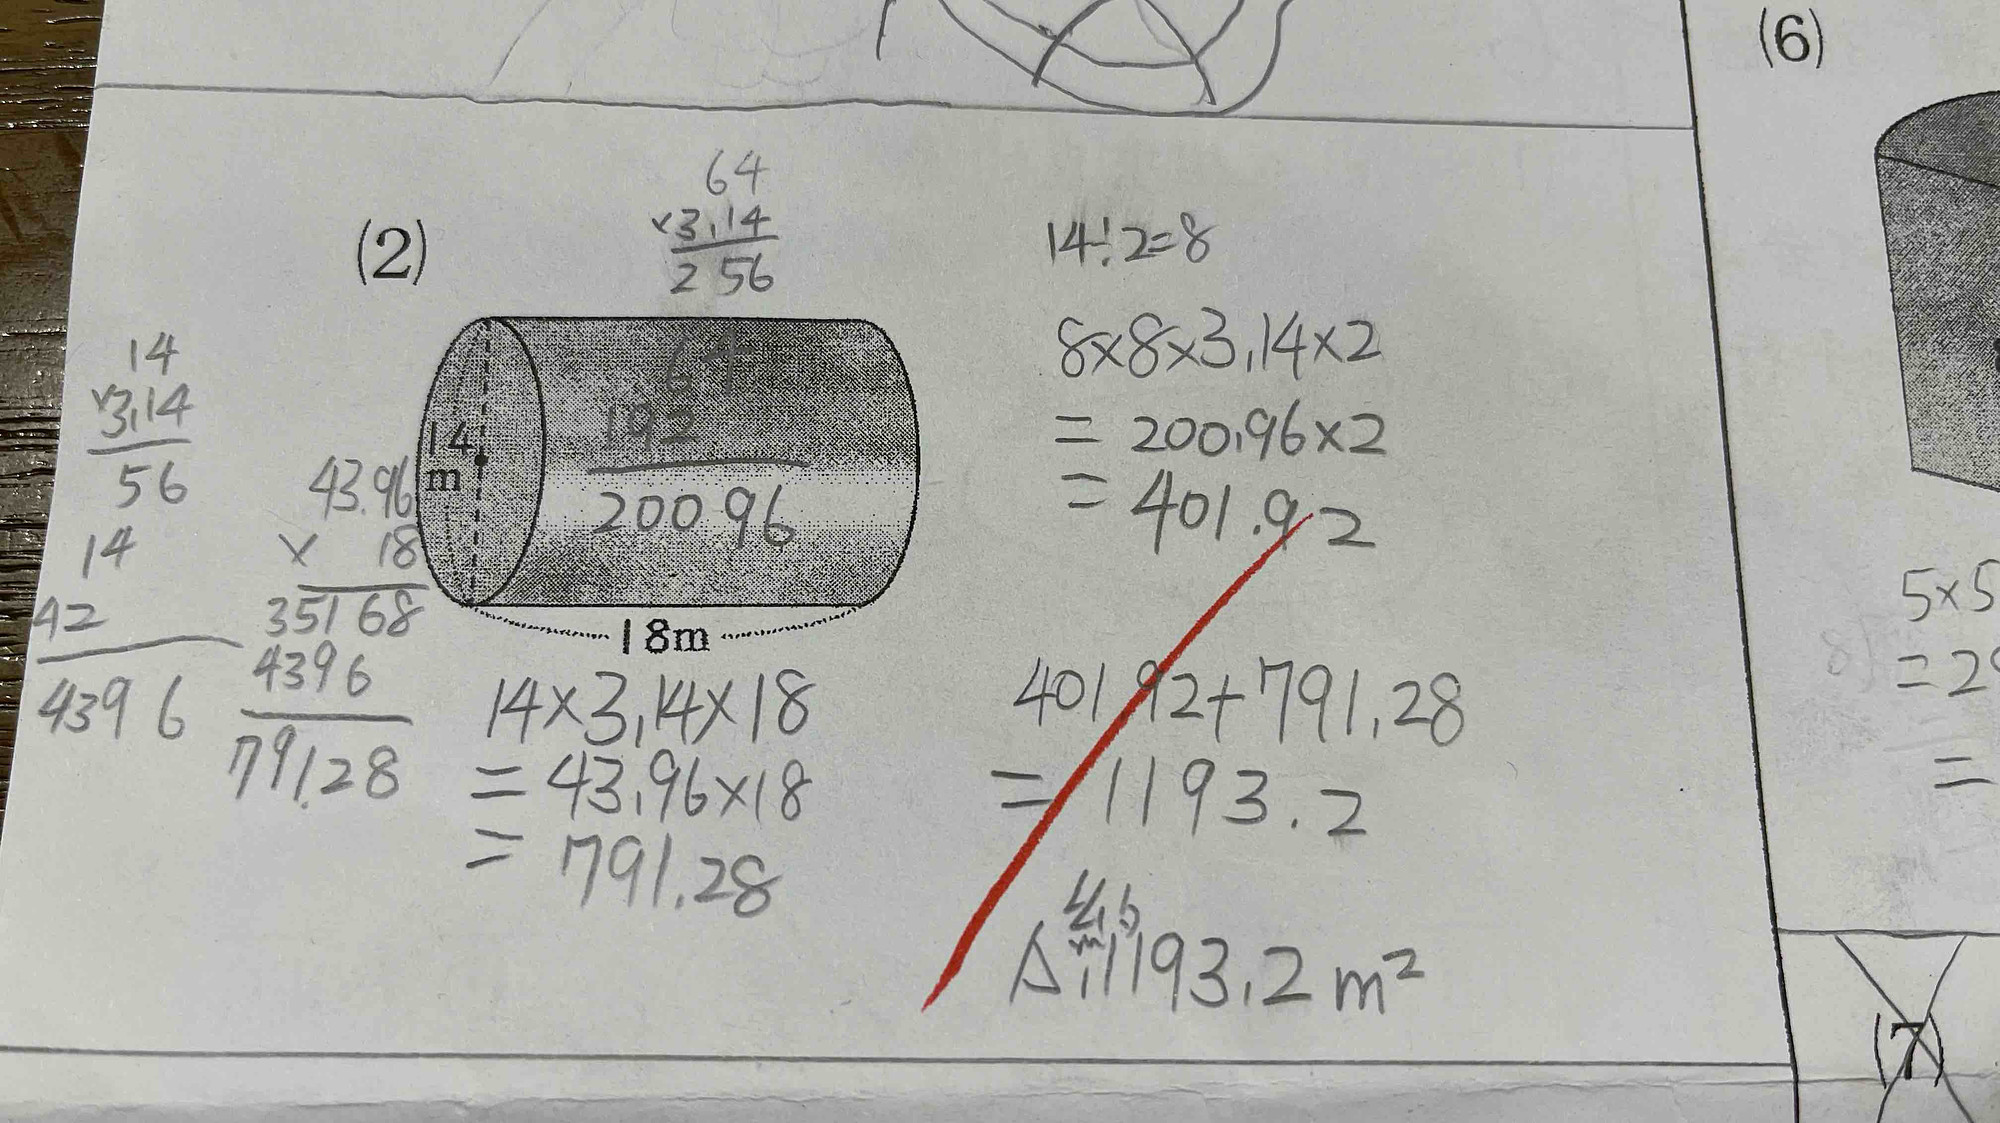 (6)
(2)
64
×3.14
2 56
64
192
200 96
14
m
18m
14
×3.14
56
14
42
439 6
43.96
× 18
351 68
439 6
791.28
14×3.14×18
= 43.96×18
= 791.28
14÷2=8
8×8×3.14×2
= 200.96×2
= 401.92
401 92+791.28
= 1193.2
A 1193.2 m²
5×5
= 2
=
(7)